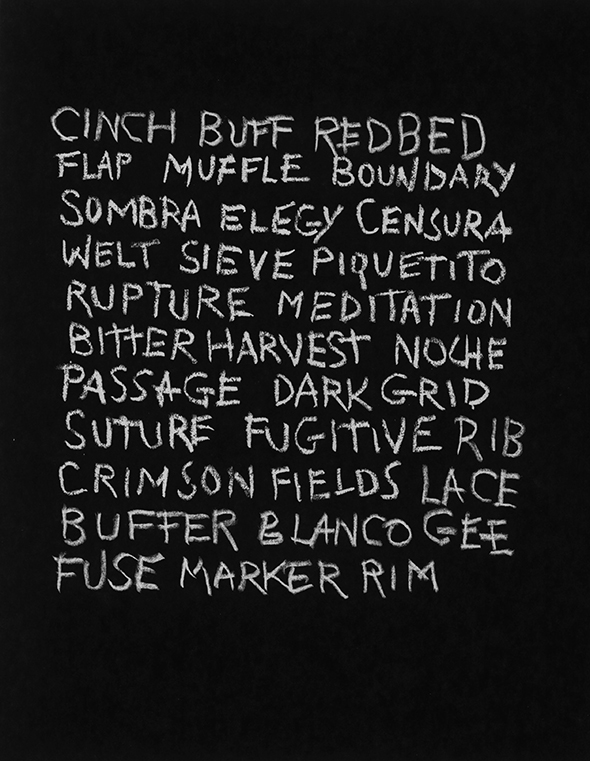 CINCH BUFF REDBED
FLAP MUFFLE BOUNDARY
SOMBRA ELEGY CENSURA
WELT SIEVE PIQUETITO
RUPTURE MEDITATION
BITTER HARVEST NOCHE
PASSAGE DARK GRID
SUTURE FUGITIVE RIB
CRIMSON FIELDS LACE
BUFFER BLANCO GEE
FUSE MARKER RIM